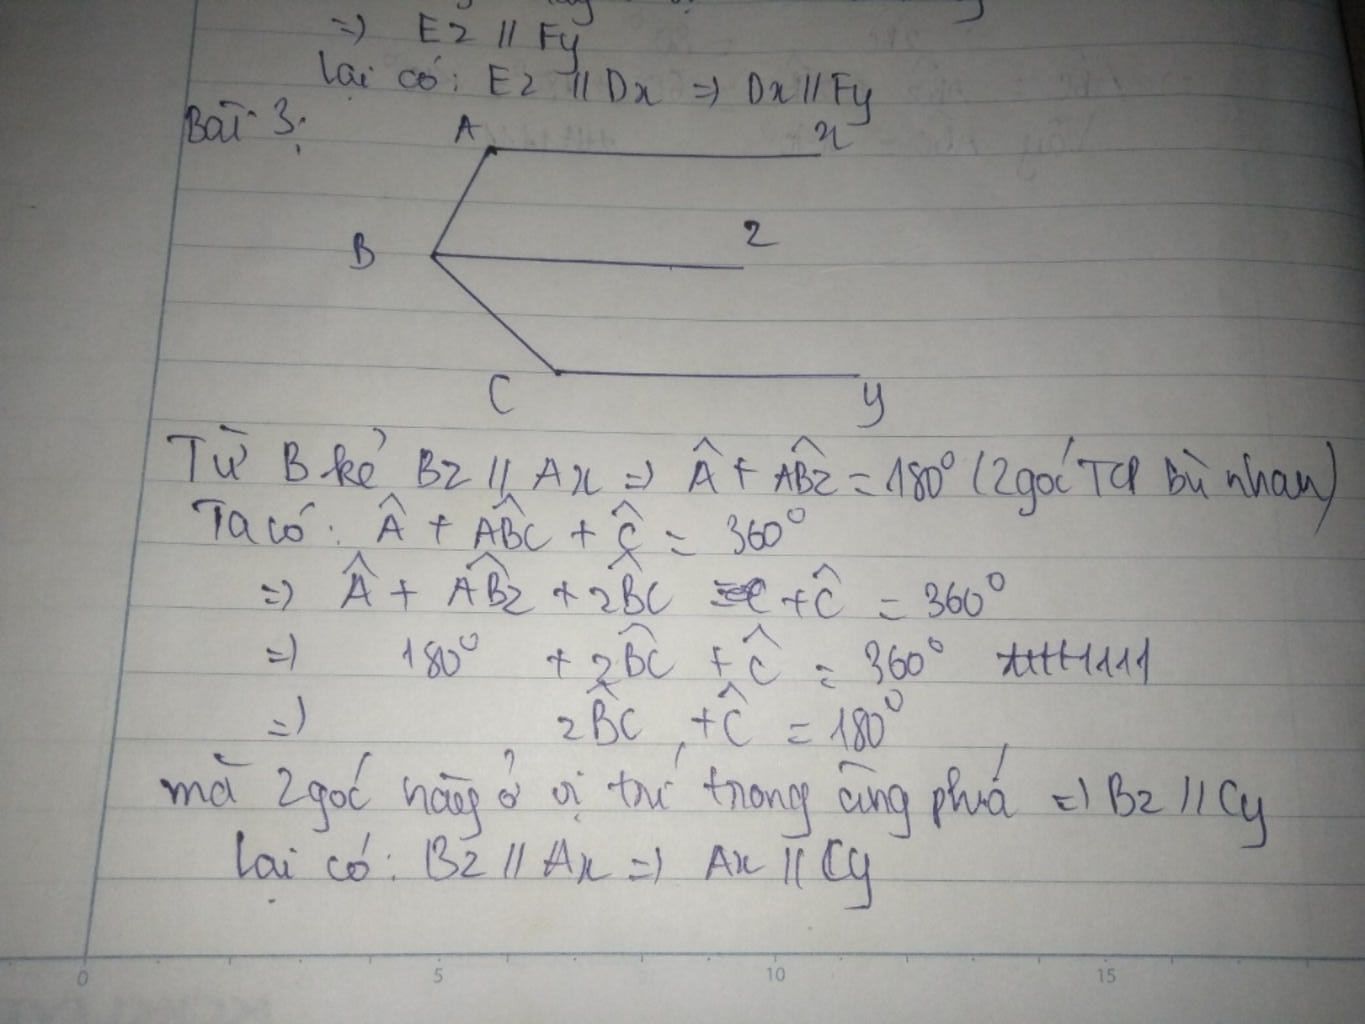 =) Ez // Fy
lại có: Ez // Dx =) Dx // Fy
Bài 3:
A x
B z
C y
Từ B kẻ Bz // Ax =) Â + ABz = 180° (2 góc TCP bù nhau)
Ta có: Â + ABC + Ĉ = 360°
=) Â + ABz + zBC + Ĉ = 360°
=) 180° + zBC + Ĉ = 360°
=) zBC + Ĉ = 180°
mà 2 góc này ở vị trí trong cùng phía =) Bz // Cy
lại có: Bz // Ax =) Ax // Cy
0 5 10 15